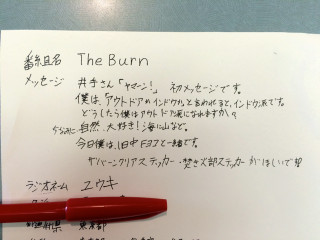 番組名 The Burn
メッセージ 井手さん「ヤマーン!」 初メッセージです。
僕は、「アウトドアorインドア」かと言われると、インドア派です。
どうしたら僕はアウトドア派になれますか?
ちなみに自然、大好き!海に山など。
今日僕は、旧中
と一緒です。
サバーンクリアステッカー・焚き火部ステッカーがほしいで
ラジオネーム ユウキ
県 東京都